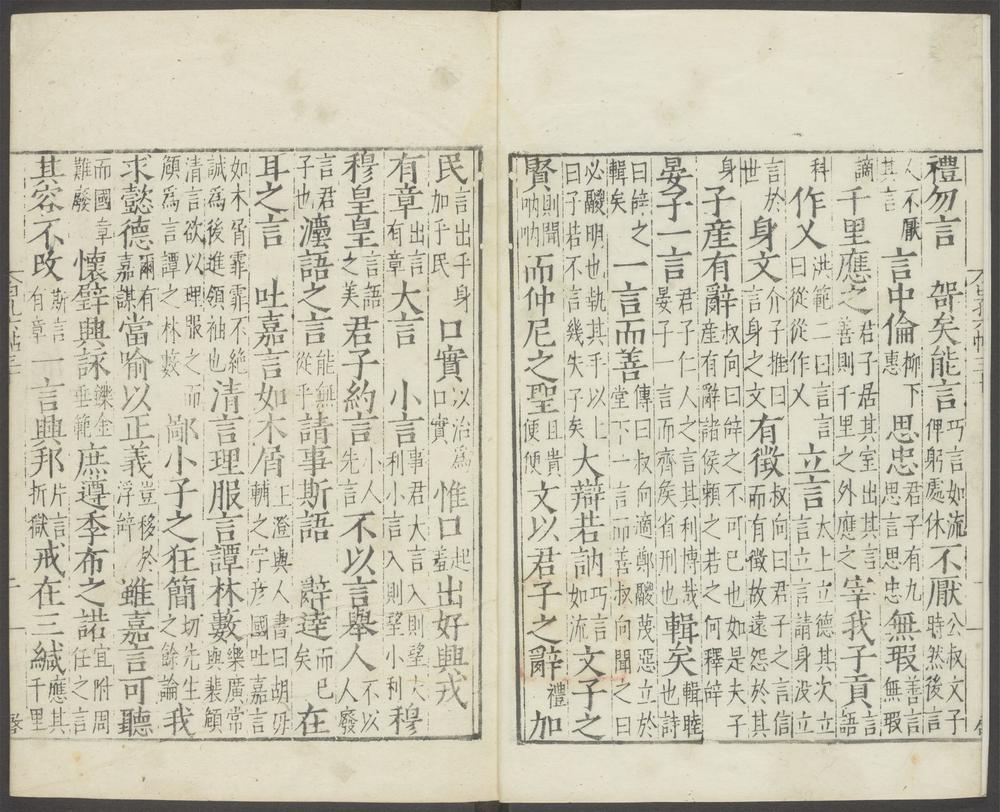 禮勿言　哿矣能言巧言如流俾躬處休不厭公叔文子時然後言
人不厭其言　言中倫柳下惠　思忠君子有九思言思忠無瑕善言無瑕
謫千里應之君子居其室出其言善則千里之外應之宰我子貢言語
科作乂洪範二曰言曰從從作乂　立言太上立德其次立言立言請身没立
言於世　身文介子推曰言身之文　有徵叔向曰君子之言信而有徵故遠怨於其
身子產有辭叔向曰辞之不可已也如是夫子產有辭諸侯賴之若之何釋辞
晏子一言君子仁人之言其利博哉晏子一言而齊侯省刑也輯矣輯睦也詩
曰辞之輯矣　一言而善傳曰叔向適鄭鬷蔑惡立於堂下一言而善叔向聞之曰
必鬷明也執其手以上曰子若不言幾失子矣　大辯若訥巧言如流　文子之
賢則聞吶吶而仲尼之聖且貴便便文以君子之辭禮加
民言出乎身加乎民　口實以治爲口實　惟口起羞出好興戎
有章出言有章大言　小言事君大言入則望大利小言入則望小利穆
穆皇皇言語之美君子約言小人先言不以言舉人不以人廢
言君子也　灋語之言能無從乎請事斯語　辭達而已矣　在
耳之言　吐嘉言如木屑王澄與人書曰胡毋輔之字彦國吐嘉言
如木屑霏霏不絶誠爲後進領袖也清言理服言譚林藪樂廣常與裴頠
清言欲以理服之而頠爲言譚之林藪　鄙小子之狂簡切先生之餘論我
求懿德爾有嘉謀當喻以正義豈移於浮辞　雖嘉言可聽
而國章難廢　懷璧興詠鑠金垂範庶遵季布之諾宜附周任之言
其容不改斯言有章　一言興邦片言折獄戒在三緘應其千里